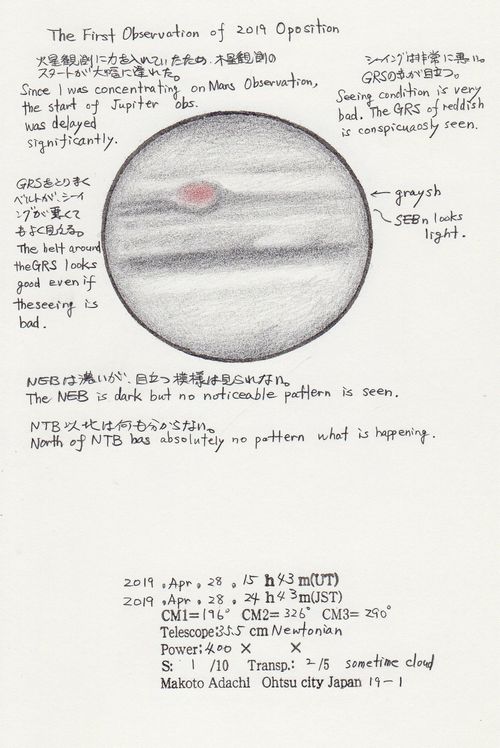 The First Observation of 2019 Oposition
火星観測に力を入れていたため、木星観測の
スタートが大幅に遅れた。
Since I was concentrating on Mars Observation,
the start of Jupiter obs.
was delayed
significantly.
シーイングは非常に悪い。
GRSの赤が目立つ。
Seeing condition is very
bad. The GRS of reddish
is conspicuaosly seen.
GRSをとりまく
ベルトが、シーイ
ングが悪くて
もよく見える。
The belt around
the GRS looks
good even if
the seeing is
bad.
← graysh
SEBn looks
light.
NEBは濃いが、目立つ模様は見られない。
The NEB is dark but no noticeable pattern is seen.
NTB以北は何も分からない。
North of NTB has absolutely no pattern what is happening.
2019 , Apr , 28 , 15 h 43 m(UT)
2019 , Apr , 28 , 24 h 43 m(JST)
CM1=196° CM2=326° CM3=290°
Telescope:35.5 cm Newtonian
Power:400 × ×
S: 1 /10 Transp.: 2 /5 sometime cloud
Makoto Adachi Ohtsu city Japan 19-1